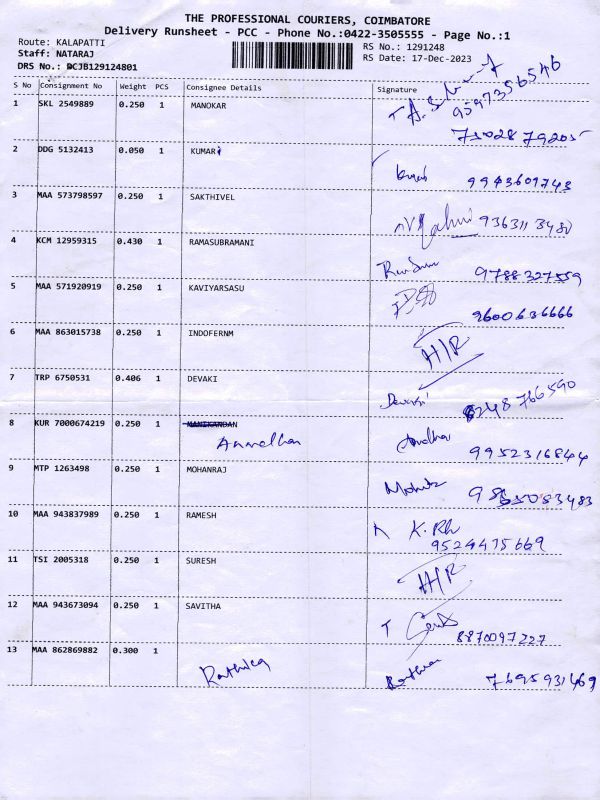 THE PROFESSIONAL COURIERS, COIMBATORE
Delivery Runsheet - PCC - Phone No.:0422-3505555 - Page No.:1
Route: KALAPATTI
RS No.: 1291248
Staff: NATARAJ
RS Date: 17-Dec-2023
DRS No.: DCJB129124801
S No Consignment No Weight PCS Consignee Details Signature
1 SKL 2549889 0.250 1 MANOKAR 9597356546
2 DDG 5132413 0.050 1 KUMAR 9943609743
3 MAA 573798597 0.250 1 SAKTHIVEL 9363113480
4 KCM 12959315 0.430 1 RAMASUBRAMANI 9788327559
5 MAA 571920919 0.250 1 KAVIYARSASU 9600636666
6 MAA 863015738 0.250 1 INDOFERNM H/R
7 TRP 6750531 0.406 1 DEVAKI Devaki 8248766590
8 KUR 7000674219 0.250 1 MANIKANDAN
Anandhan 9952316844
9 MTP 1263498 0.250 1 MOHANRAJ
10 MAA 943837989 0.250 1 RAMESH K. Rh
9524475669
11 TSI 2005318 0.250 1 SURESH H/R
12 MAA 943673094 0.250 1 SAVITHA 8870097227
13 MAA 862869882 0.300 1
Rathika 7695931469